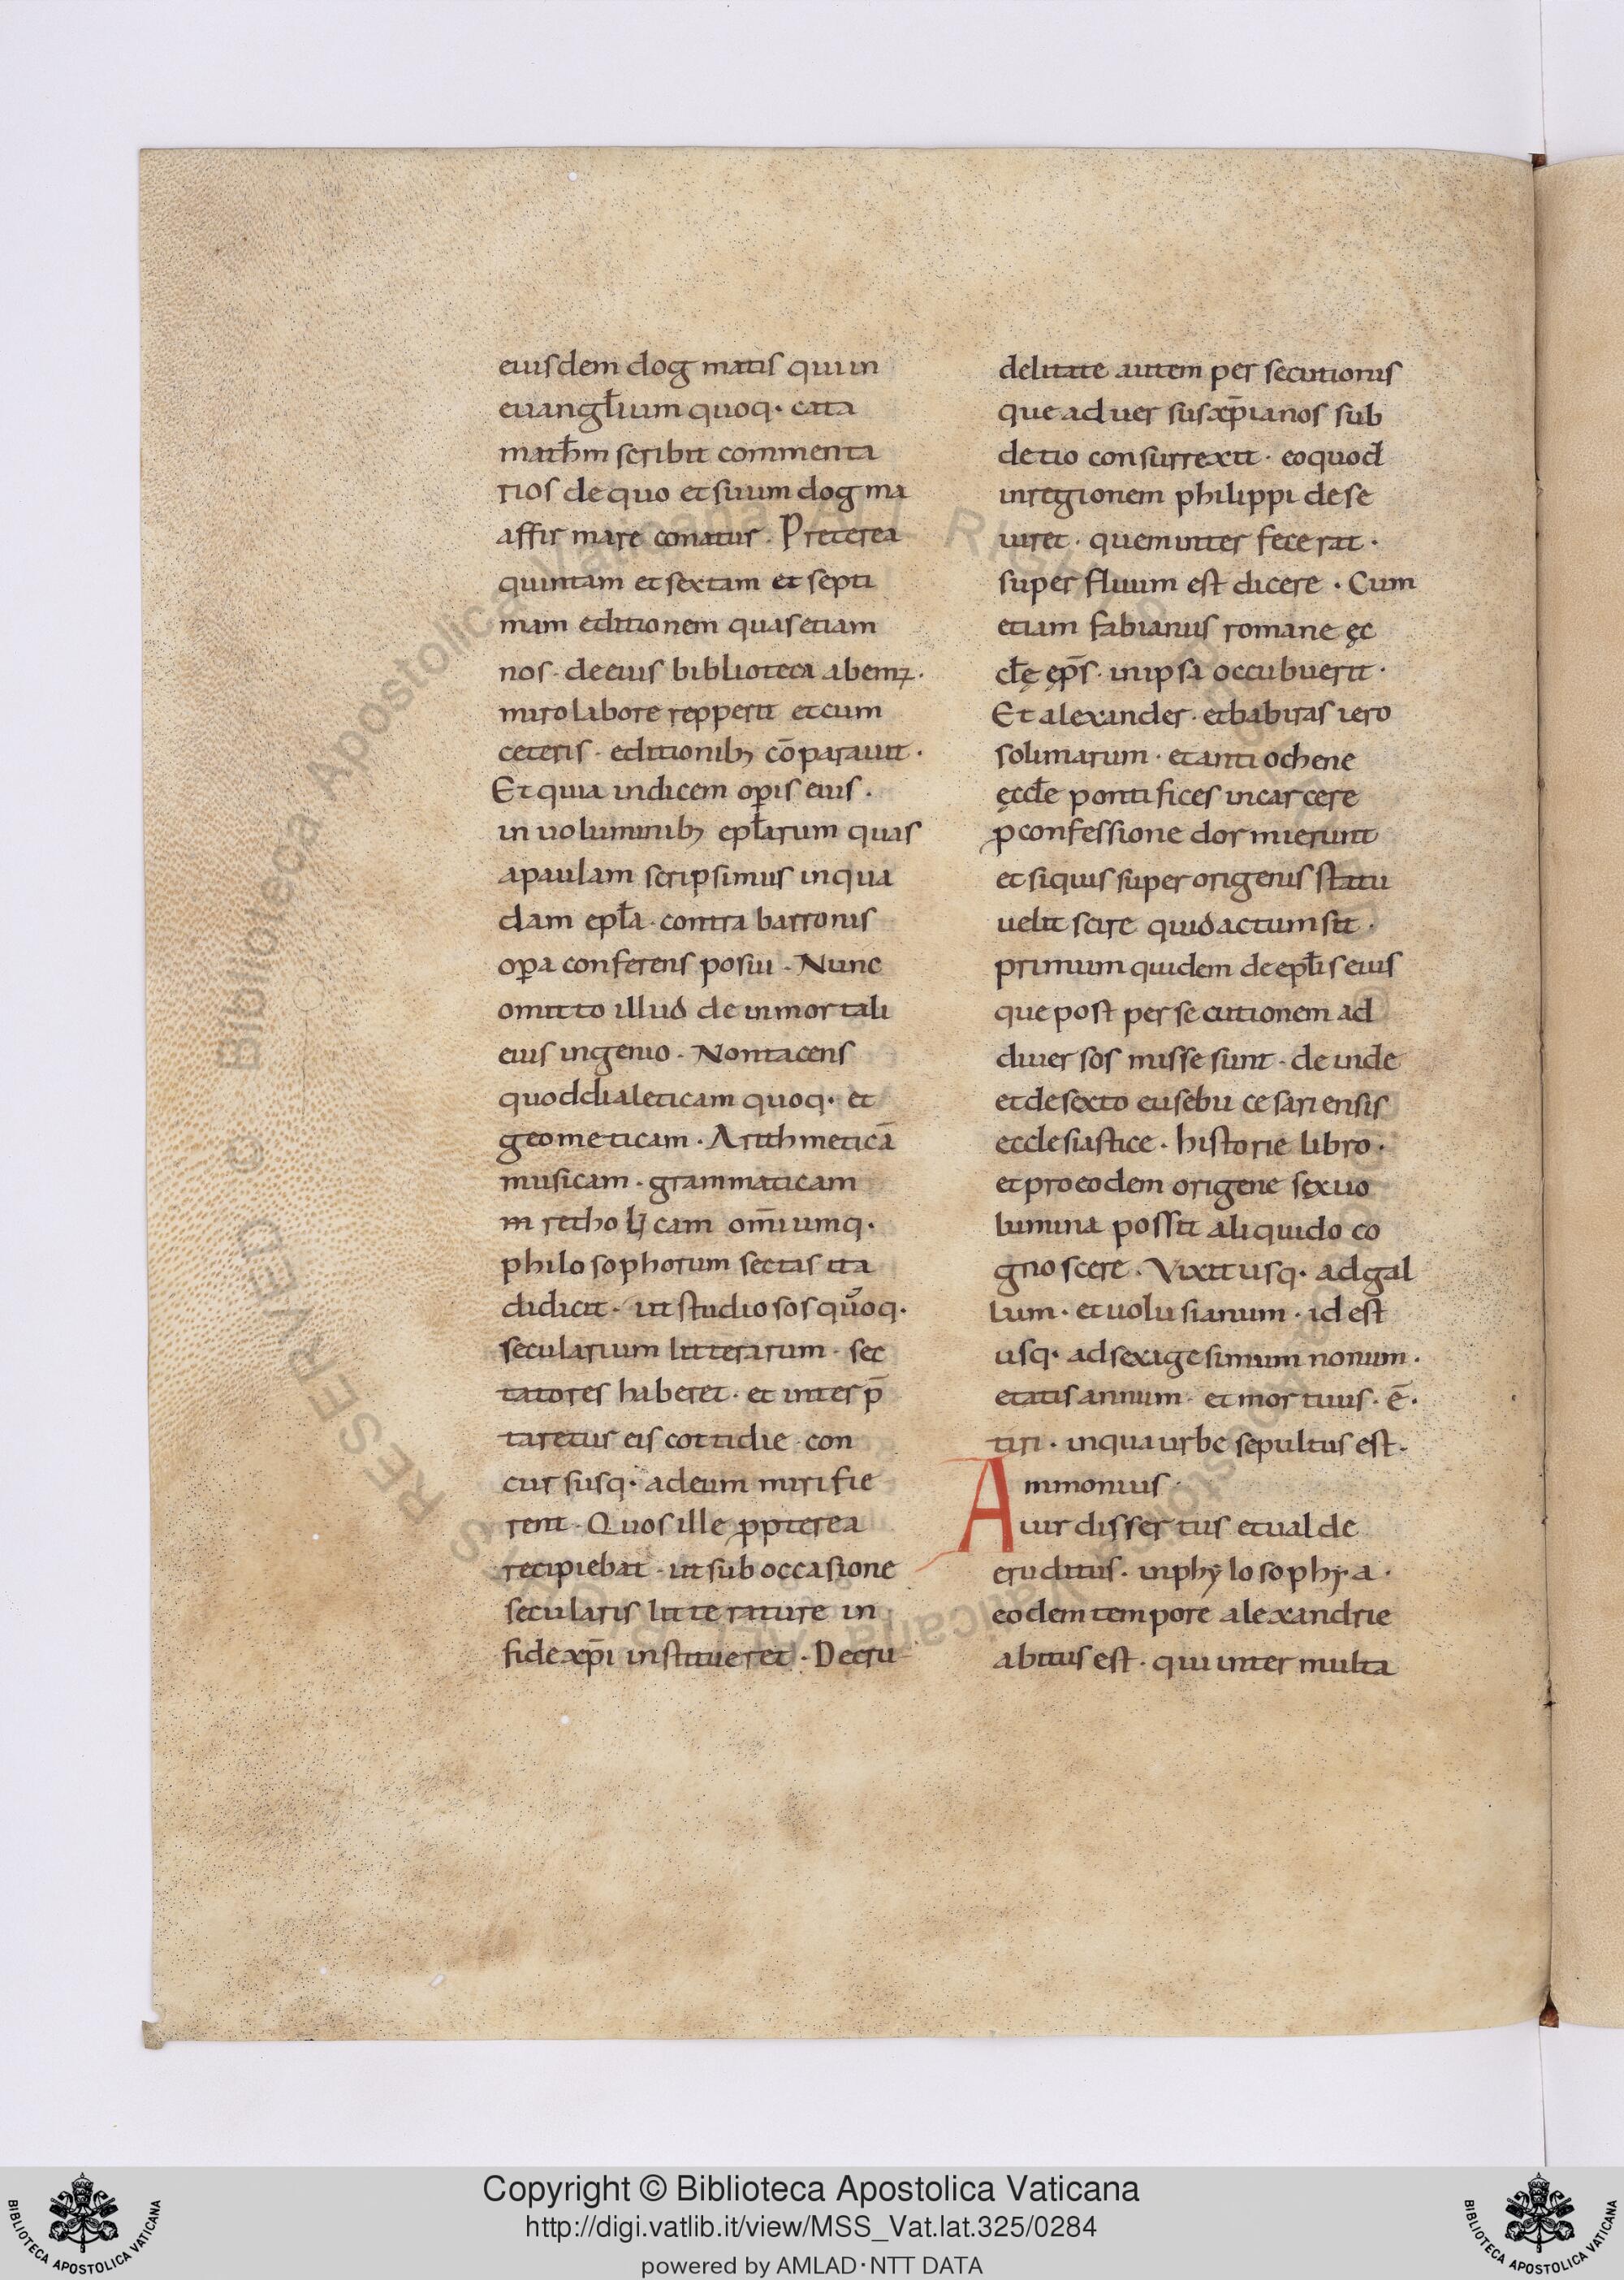 eiusdem dog matis qui in
euangłium quoq· cata
matħm scribit commenta
rios de quo et suum dog ma
affir mare conatur · Preterea
quintam et sextam et septi
mam editionem quas etiam
nos · de eius biblioteca abemꝰ·
miro labore repperit et cum
ceteris · editionibꝫ cōparauit ·
Et quia indicem oꝑis eius ·
in uoluminibꝫ epłarum quas
apaulam scripsimus in qua
dam epła · contra barronis
oꝑa conferens posui · Nunc
omitto illud de inmor tali
eius ingenio · Non tacens
quod dialeticam quoq· et
geometicam · Arithmeticā
musicam · grammaticam
cam om̄iumq·
philo sophorum sectas ita
didicit · ut studio sos quoq·
secularium litterarum · sec
tatores haberet · et inter p̄
taretur eis cottidie · con
cur susq· ad eum miri fie
rent · Quos ille ꝓpterea
recipiebat · ut sub occasione
secularis litte rature in
fide xp̄i institueret · De cru
delitate autem per secutionis
que ad uer sus xp̄ianos sub
detio con surrexit · eo quod
in regionem philippi de se
uiret · quem inter fece rat ·
super fluum est dicere · Cum
etiam fabianus romane ęc
cłę ęp̄s · in ip sa occubuerit ·
Et alexander · et babiras iero
solimarum · et anti ochene
ęccłe ponti fices in carcere
ꝓ confessione dor mierunt
et si quis super origenis statu
uelit scire quid actum sit ·
primum quidem de epłis eius
que post per se cutionem ad
diuer sos misse sunt · de inde
et de sexto eusebii ce sari ensis
ecclesiastice · historie libro ·
et pro eodem origene sex uo
lumina possit aliquido co
gno scere · Vixit usq· ad gal
lum · et uolu sianum · id est
usq· ad sexage simum nonum ·
etatis annum · et mor tuus · ē ·
tiri · in qua urbe sepultus est ·
Ammonius ·
uir disser tus et ual de
eruditus · in phẏ lo so phẏ a ·
eodem tem pore alexandrie
abitus est · qui inter multa
Copyright © Biblioteca Apostolica Vaticana
http://digi.vatlib.it/view/MSS_Vat.lat.325/0284
powered by AMLAD·NTT DATA
BIBLIOTECA APOSTOLICA VATICANA
BIBLIOTECA APOSTOLICA VATICANA